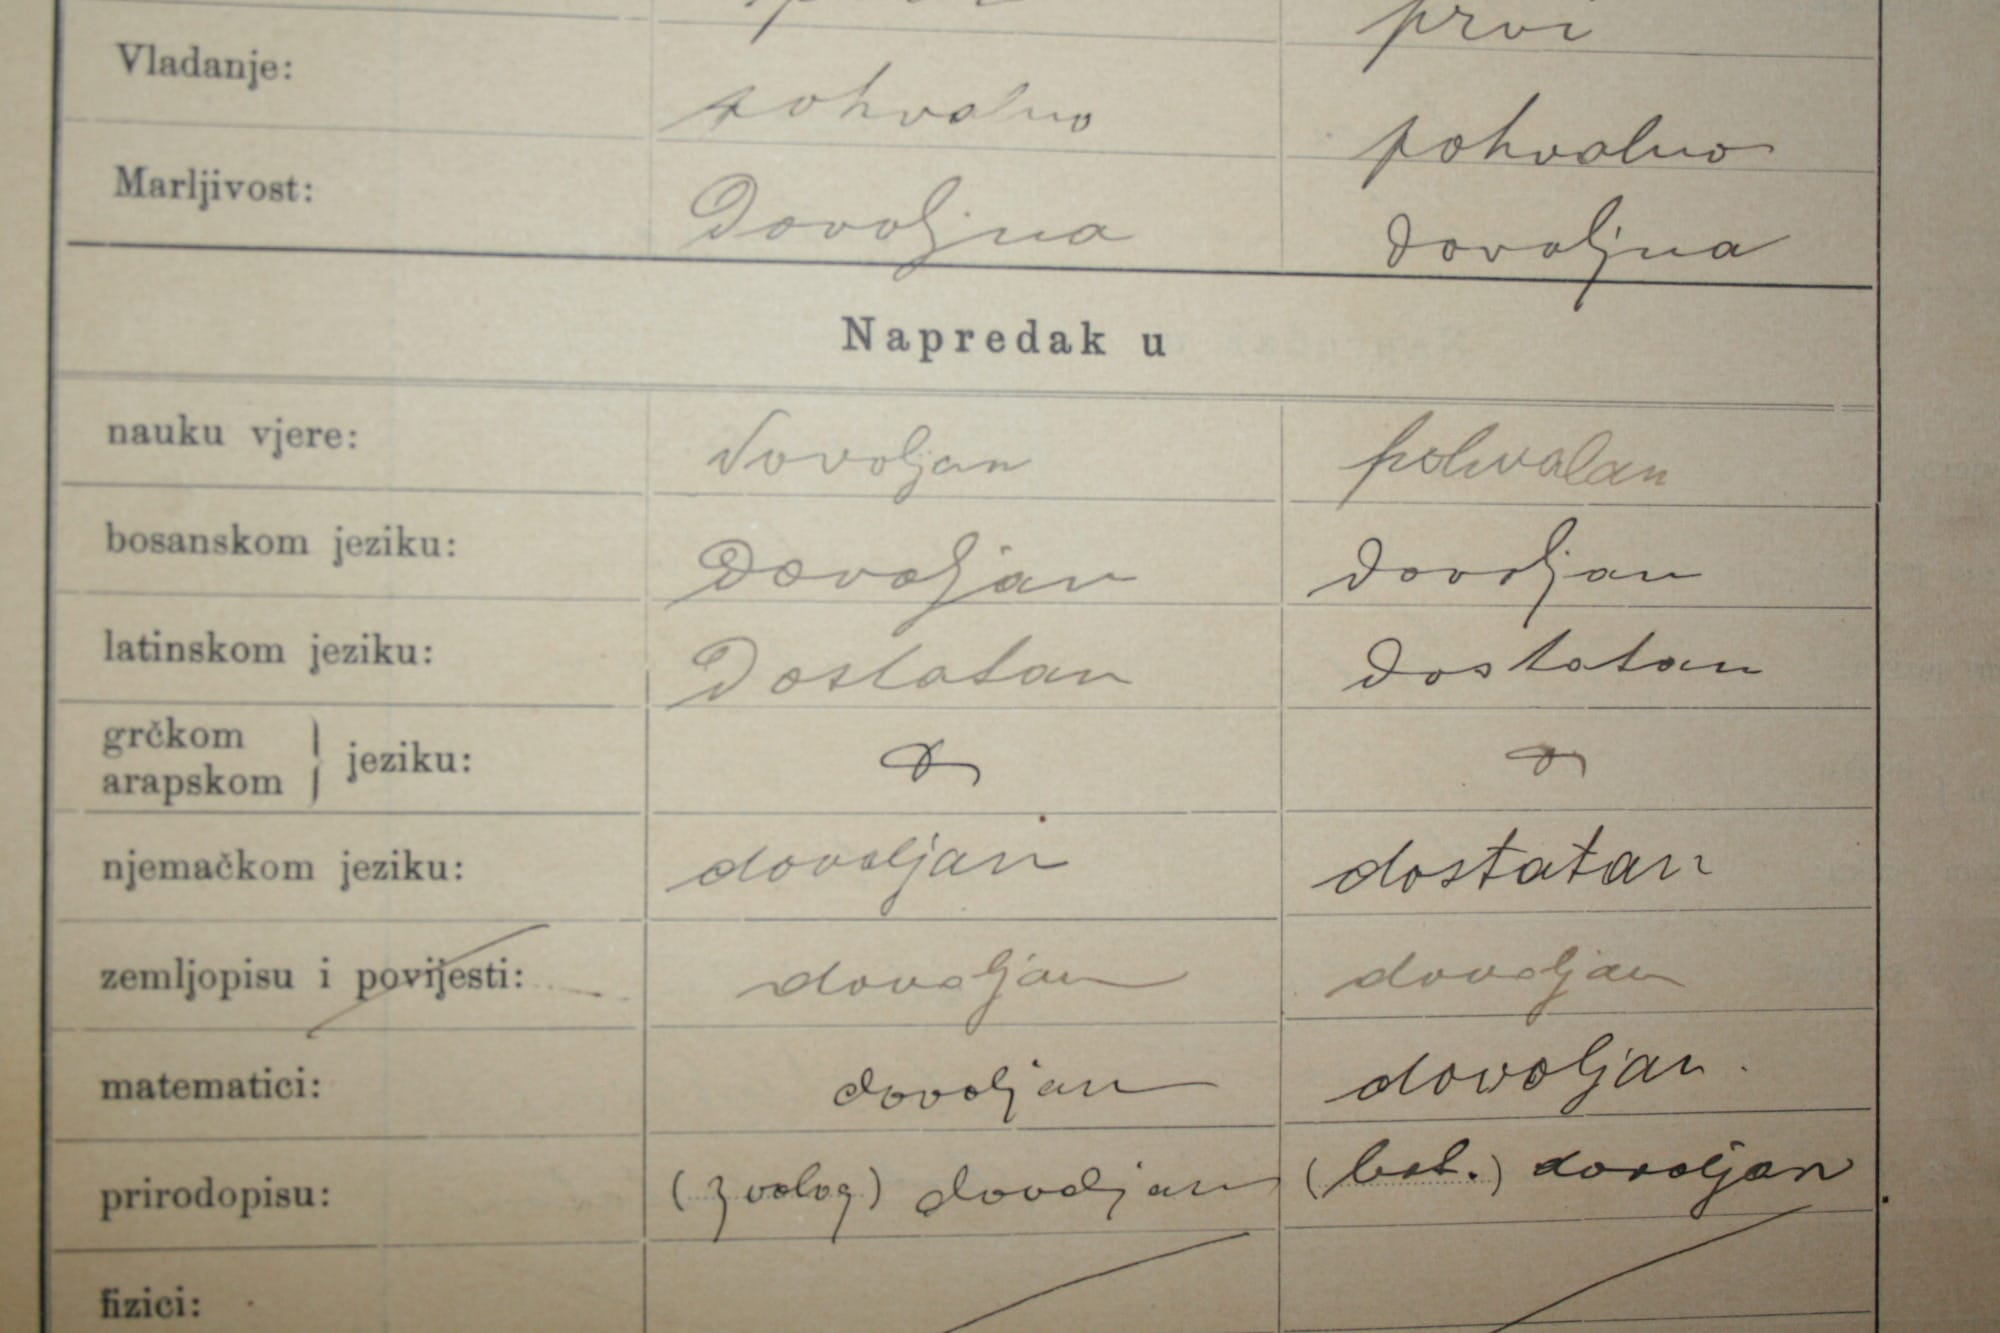 prvi
Vladanje: pohvalno pohvalno
Marljivost: Dovoljna dovoljna
Napredak u
nauku vjere: dovoljan pohvalan
bosanskom jeziku: Dovoljan dovoljan
latinskom jeziku: Dostatan dostatan
grčkom
arapskom } jeziku:
njemačkom jeziku: dovoljan dostatan
zemljopisu i povijesti: dovoljan dovoljan
matematici: dovoljan dovoljan.
prirodopisu: (zoolog) dovoljan (bot.) dovoljan
fizici: